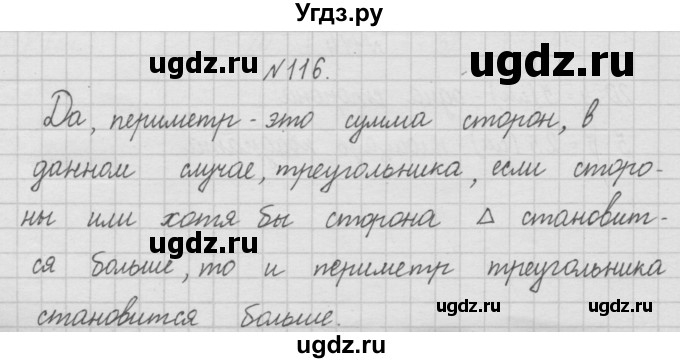 Угдз.ру
ugdz.ru ugdz.ru
№116.
Да, периметр - это сумма сторон, в
данном случае, треугольника, если сторо-
ны или хотя бы сторона Δ становит-
ся больше, то и периметр треугольника
становится больше.
ugdz.ru ugdz.ru
ugdz.ru ugdz.ru
ugdz.ru